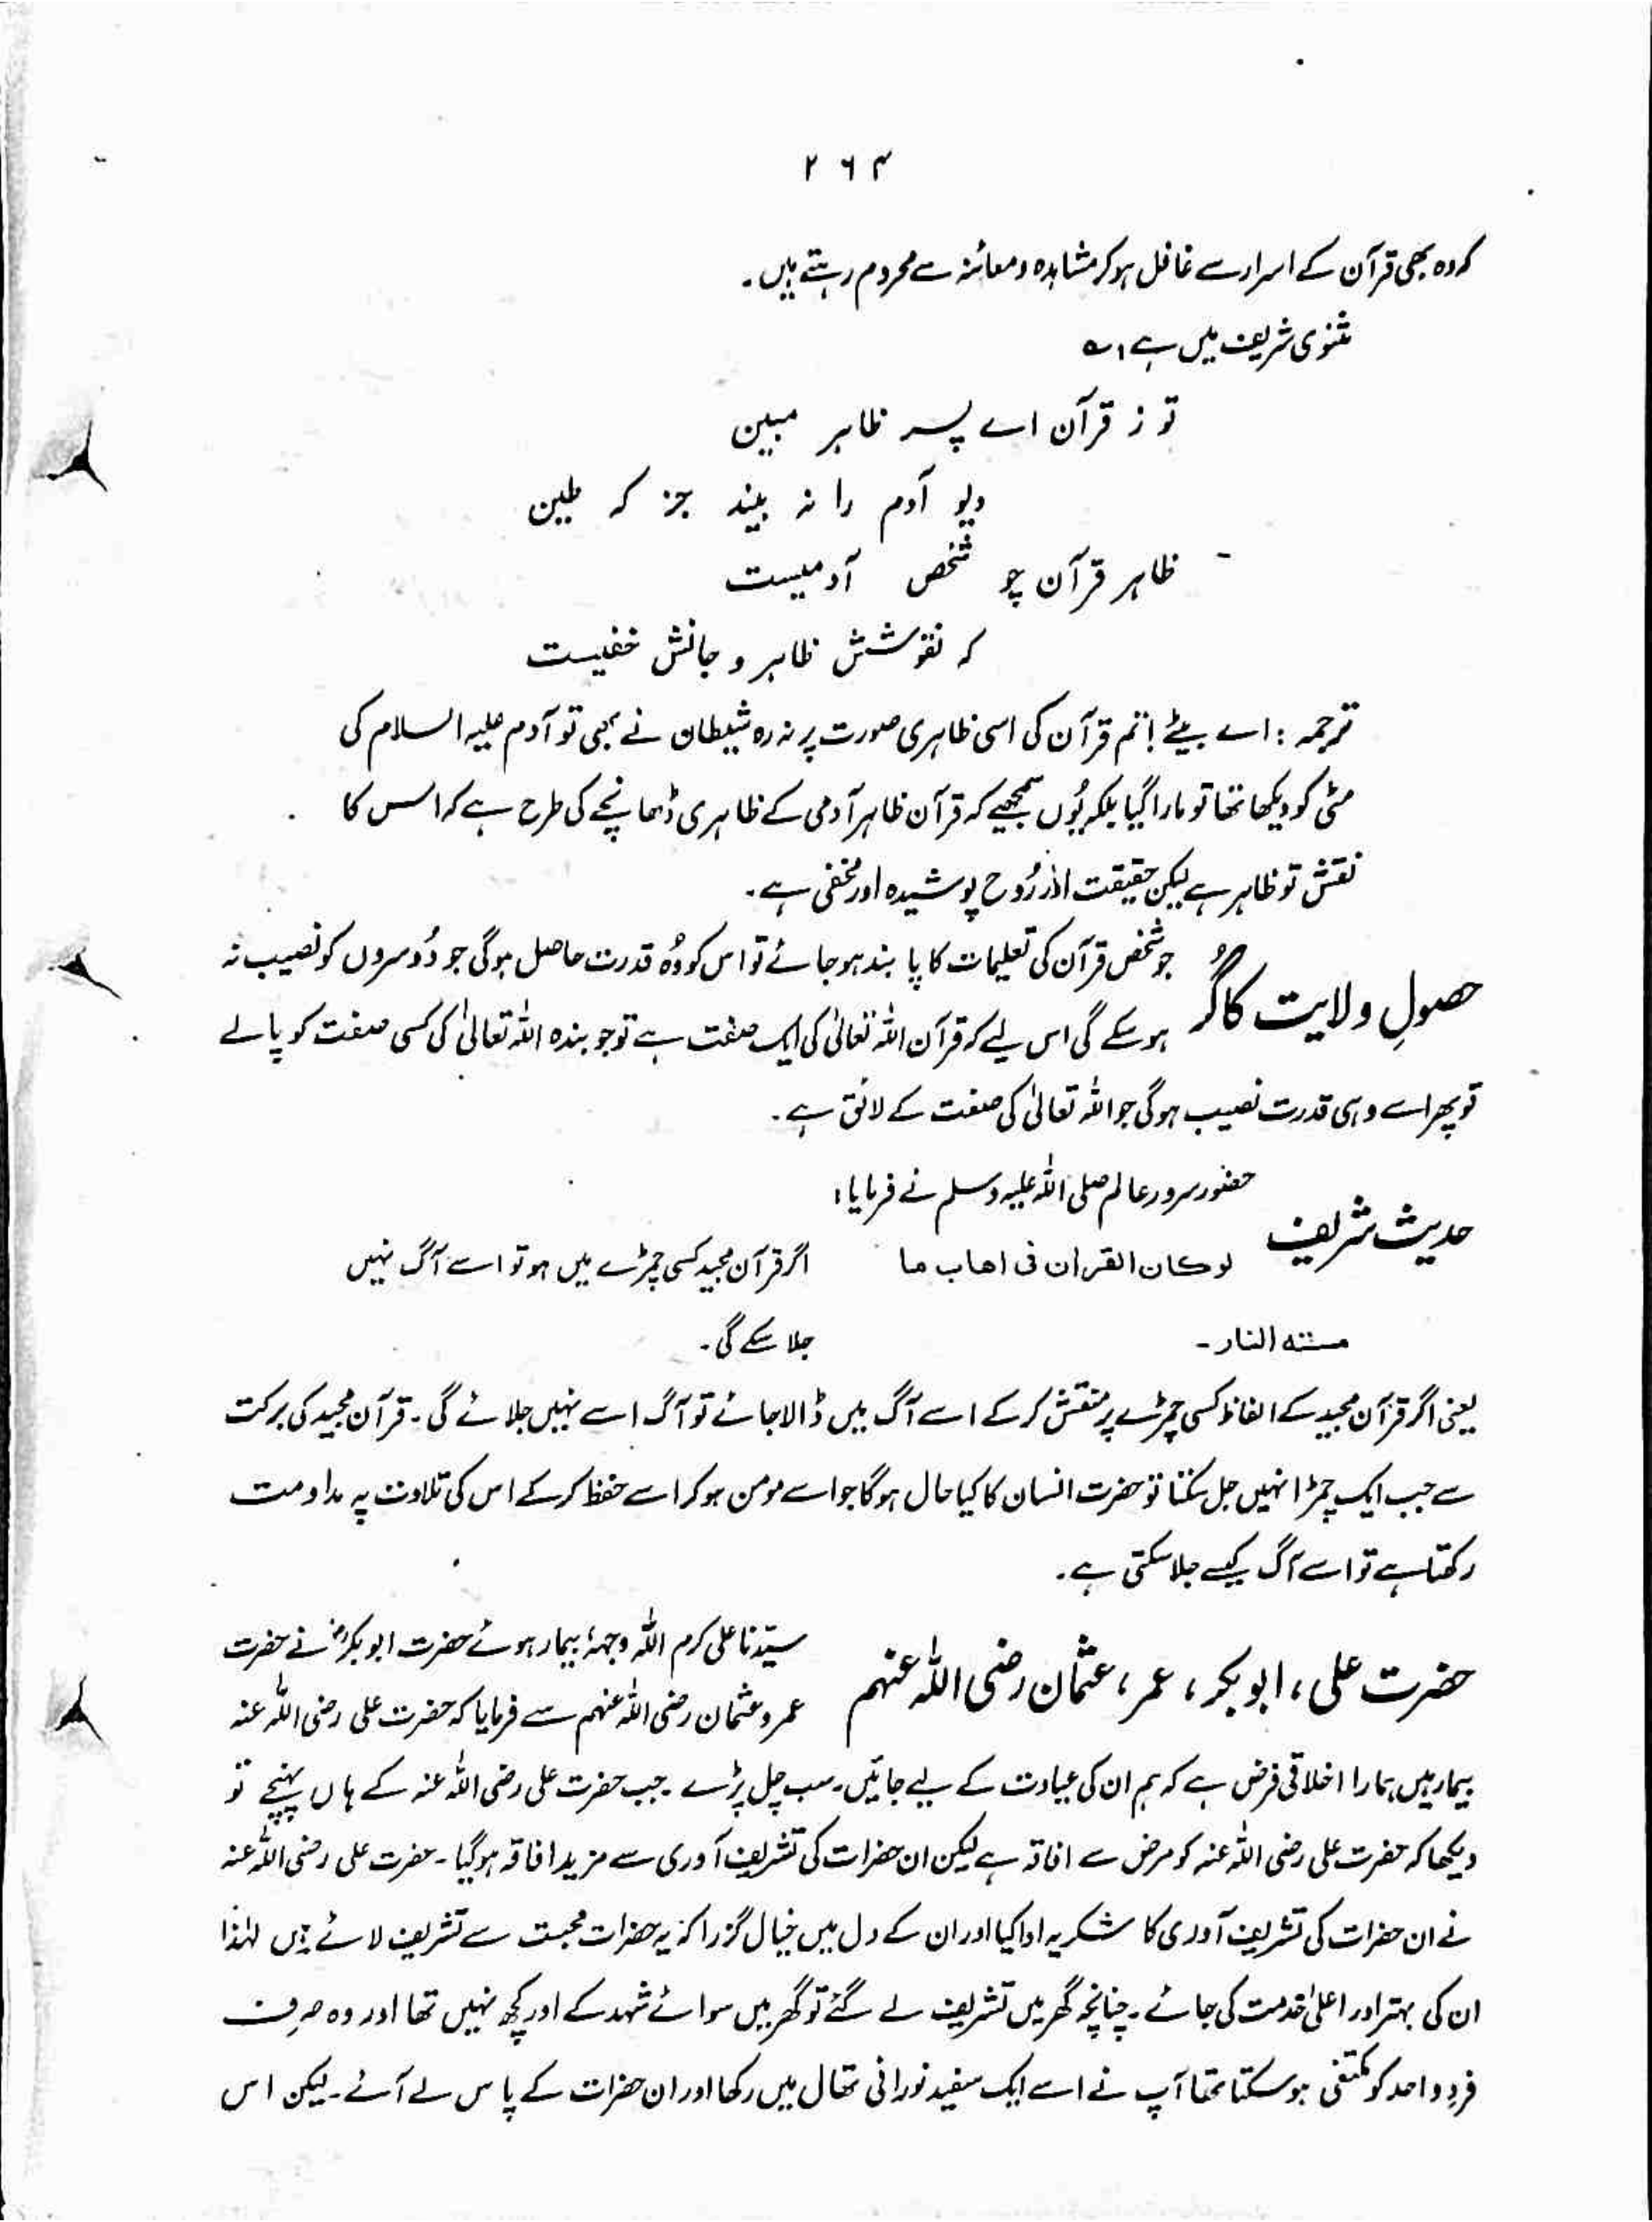 ۲۶۴
کہ وہ بھی قرآن کے اسرار سے غافل ہو کر مشاہدہ و معائنہ سے محروم رہتے ہیں۔
مثنوی شریف میں ہے؛ ؎
تو ز قرآن اے پسر ظاہر مبین
دیو آدم را نہ بیند جز کہ طین
ظاہر قرآن چو شخص آدمیست
کہ نقوشش ظاہر و جانش خفیست
ترجمہ: اے بیٹے! تم قرآن کی اسی ظاہری صورت پر نہ رہ شیطان نے بھی تو آدم علیہ السلام کی
مٹی کو دیکھا تھا تو مارا گیا بلکہ یُوں سمجھیے کہ قرآن ظاہر آدمی کے ظاہری ڈھانچے کی طرح ہے کہ اس کا
نقش تو ظاہر ہے لیکن حقیقت اور رُوح پوشیدہ اور مخفی ہے۔
حصولِ ولایت کا گُر
جو شخص قرآن کی تعلیمات کا پابند ہو جائے تو اس کو وُہ قدرت حاصل ہوگی جو دُوسروں کو نصیب نہ
ہو سکے گی اس لیے کہ قرآن اللہ تعالیٰ کی ایک صفت ہے تو جو بندہ اللہ تعالیٰ کی کسی صفت کو پا لے
تو پھر اسے وہی قدرت نصیب ہوگی جو اللہ تعالیٰ کی صفت کے لائق ہے۔
حدیث شریف
حضور سرور عالم صلی اللہ علیہ وسلم نے فرمایا:
لو کان القران فی اھاب ما
اگر قرآن مجید کسی چمڑے میں ہو تو اسے آگ نہیں
مستہ النار۔
جلا سکے گی۔
یعنی اگر قرآن مجید کے الفاظ کسی چمڑے پر منقش کر کے اسے آگ میں ڈالا جائے تو آگ اسے نہیں جلائے گی۔ قرآن مجید کی برکت
سے جب ایک چمڑا نہیں جل سکتا تو حضرت انسان کا کیا حال ہوگا جو اسے مومن ہو کر اسے حفظ کر کے اس کی تلاوت پہ مداومت
رکھتا ہے تو اسے آگ کیسے جلا سکتی ہے۔
حضرت علی، ابوبکر، عمر، عثمان رضی اللہ عنہم
سیّدنا علی کرم اللہ وجہہٗ بیمار ہوئے حضرت ابوبکرؓ نے حضرت
عمر و عثمان رضی اللہ عنہم سے فرمایا کہ حضرت علی رضی اللہ عنہ
بیمار ہیں ہمارا اخلاقی فرض ہے کہ ہم ان کی عیادت کے لیے جائیں۔ سب چل پڑے۔ جب حضرت علی رضی اللہ عنہ کے ہاں پہنچے تو
دیکھا کہ حضرت علی رضی اللہ عنہ کو مرض سے افاقہ ہے لیکن ان حضرات کی تشریف آوری سے مزید افاقہ ہو گیا۔ حضرت علی رضی اللہ عنہ
نے ان حضرات کی تشریف آوری کا شکریہ ادا کیا اور ان کے دل میں خیال گزرا کہ یہ حضرات محبت سے تشریف لائے ہیں لہٰذا
ان کی بہتر اور اعلیٰ خدمت کی جائے۔ چنانچہ گھر میں تشریف لے گئے تو گھر میں سوائے شہد کے اور کچھ نہیں تھا اور وہ صرف
فردِ واحد کو مکتفی ہو سکتا تھا آپ نے اسے ایک سفید نورانی تھال میں رکھا اور ان حضرات کے پاس لے آئے۔ لیکن اس